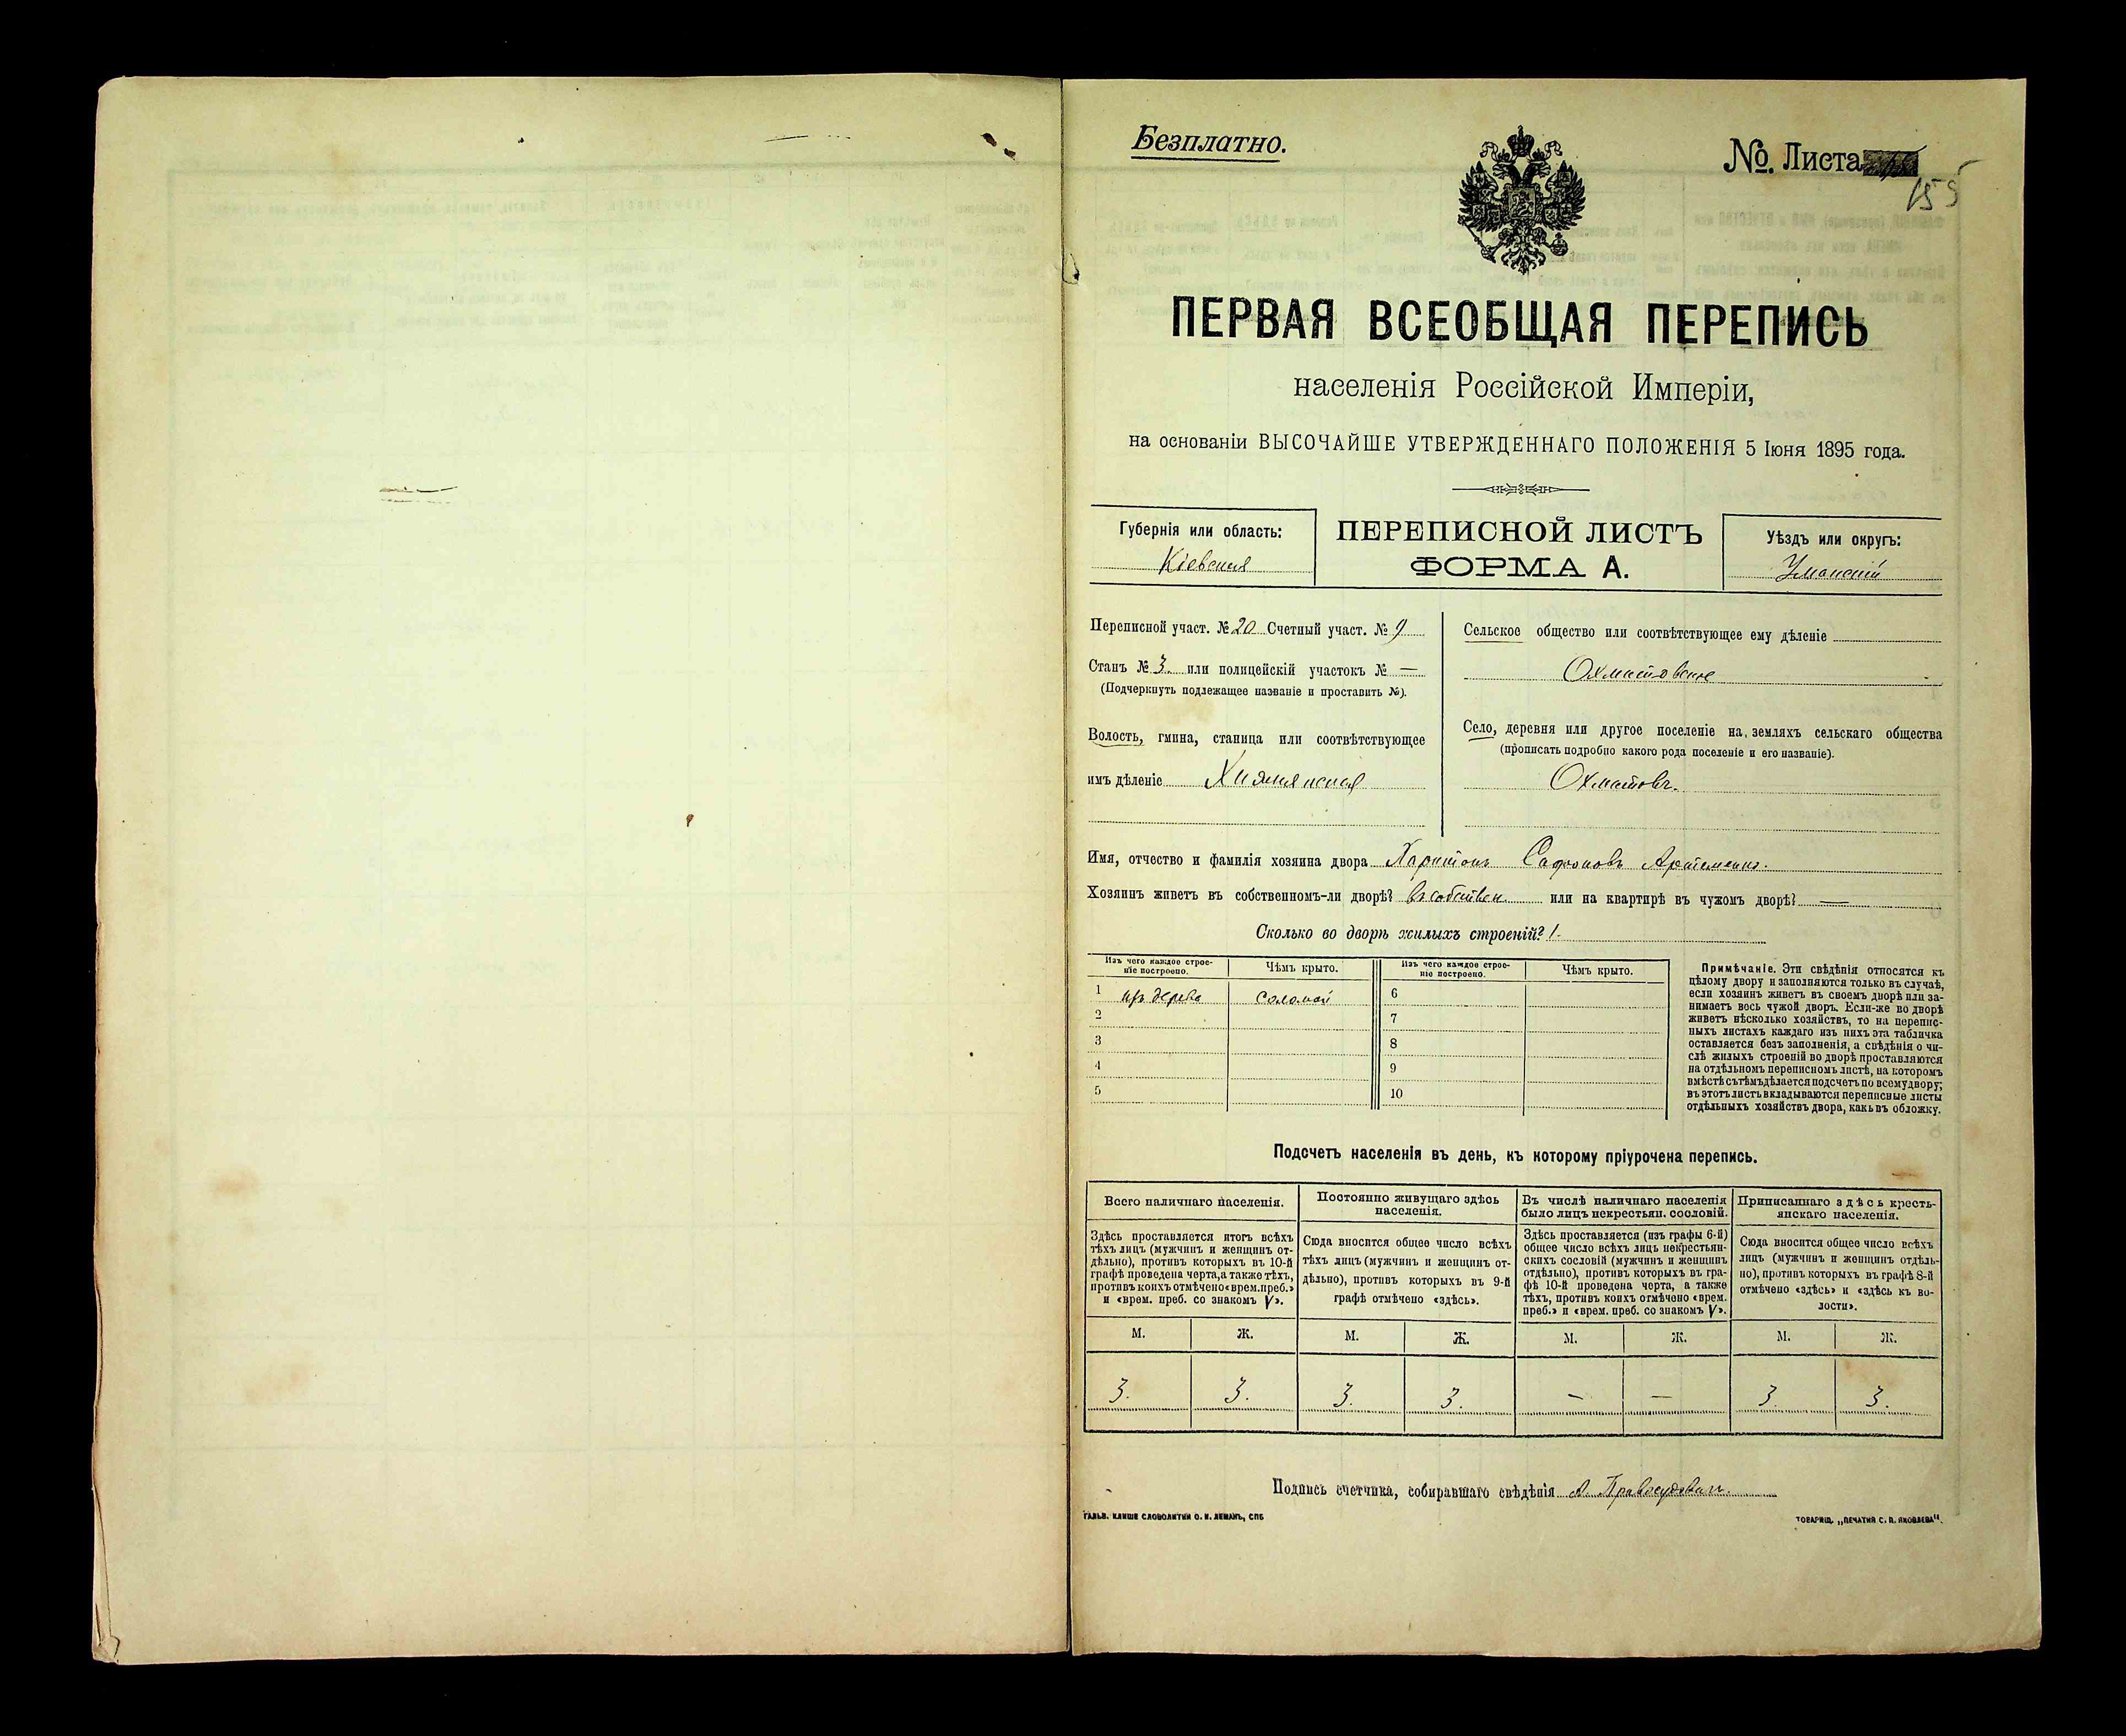 Безплатно.
№. Листа
155
ПЕРВАЯ ВСЕОБЩАЯ ПЕРЕПИСЬ
населенія Россійской Имперіи,
на основаніи ВЫСОЧАЙШЕ УТВЕРЖДЕННАГО ПОЛОЖЕНІЯ 5 Іюня 1895 года.
Губернія или область:
Кіевская
ПЕРЕПИСНОЙ ЛИСТЪ
ФОРМА А.
Уѣздъ или округъ:
Уманскій
Переписной участ. № 20 Счетный участ. № 9
Станъ № 3. или полицейскій участокъ № —
(Подчеркнуть подлежащее названіе и проставить №).
Волость, гмина, станица или соотвѣтствующее
имъ дѣленіе
Сельское общество или соотвѣтствующее ему дѣленіе
Охматовское
Село, деревня или другое поселеніе на земляхъ сельскаго общества
(прописать подробно какого рода поселеніе и его названіе).
Охматовъ.
Имя, отчество и фамилія хозяина двора Харитонъ Сафоновъ Артеменко.
Хозяинъ живетъ въ собственномъ-ли дворѣ? въ собствен. или на квартирѣ въ чужомъ дворѣ? —
Сколько во дворѣ жилыхъ строеній? 1.
Изъ чего каждое строе-
ніе построено.
Чѣмъ крыто.
Изъ чего каждое строе-
ніе построено.
Чѣмъ крыто.
1 изъ дерева соломой 6
2 7
3 8
4 9
5 10
Примѣчаніе. Эти свѣдѣнія относятся къ
цѣлому двору и заполняются только въ случаѣ,
если хозяинъ живетъ въ своемъ дворѣ или за-
нимаетъ весь чужой дворъ. Если-же во дворѣ
живетъ нѣсколько хозяйствъ, то на перепис-
ныхъ листахъ каждаго изъ нихъ эта табличка
оставляется безъ заполненія, а свѣдѣнія о чи-
слѣ жилыхъ строеній во дворѣ проставляются
на отдѣльномъ переписномъ листѣ, на которомъ
вмѣстѣ съ тѣмъ дѣлается подсчетъ по всему двору;
въ этотъ листъ вкладываются переписные листы
отдѣльныхъ хозяйствъ двора, какъ въ обложку.
Подсчетъ населенія въ день, къ которому пріурочена перепись.
Всего наличнаго населенія.
Здѣсь проставляется итогъ всѣхъ
тѣхъ лицъ (мужчинъ и женщинъ от-
дѣльно), противъ которыхъ въ 10-й
графѣ проведена черта, а также тѣхъ,
противъ коихъ отмѣчено «врем. преб.»
и «врем. преб. со знакомъ V».
Постоянно живущаго здѣсь
населенія.
Сюда вносится общее число всѣхъ
тѣхъ лицъ (мужчинъ и женщинъ от-
дѣльно), противъ которыхъ въ 9-й
графѣ отмѣчено «здѣсь».
Въ числѣ наличнаго населенія
было лицъ некрестьян. сословій.
Здѣсь проставляется (изъ графы 6-й)
общее число всѣхъ лицъ некрестьян-
скихъ сословій (мужчинъ и женщинъ
отдѣльно), противъ которыхъ въ гра-
фѣ 10-й проведена черта, а также
тѣхъ, противъ коихъ отмѣчено «врем.
преб.» и «врем. преб. со знакомъ V».
Приписаннаго здѣсь кресть-
янскаго населенія.
Сюда вносится общее число всѣхъ
лицъ (мужчинъ и женщинъ отдѣль-
но), противъ которыхъ въ графѣ 8-й
отмѣчено «здѣсь» и «здѣсь къ во-
лости».
М. Ж. М. Ж. М. Ж. М. Ж.
3. 3. 3. 3. — — 3. 3.
Подпись счетчика, собиравшаго свѣдѣнія
ГАЛЬВ. КЛИШЕ СЛОВОЛИТНИ О. И. ЛЕМАНЪ, СПБ
ТОВАРИЩ. „ПЕЧАТНЯ С. П. ЯКОВЛЕВА".